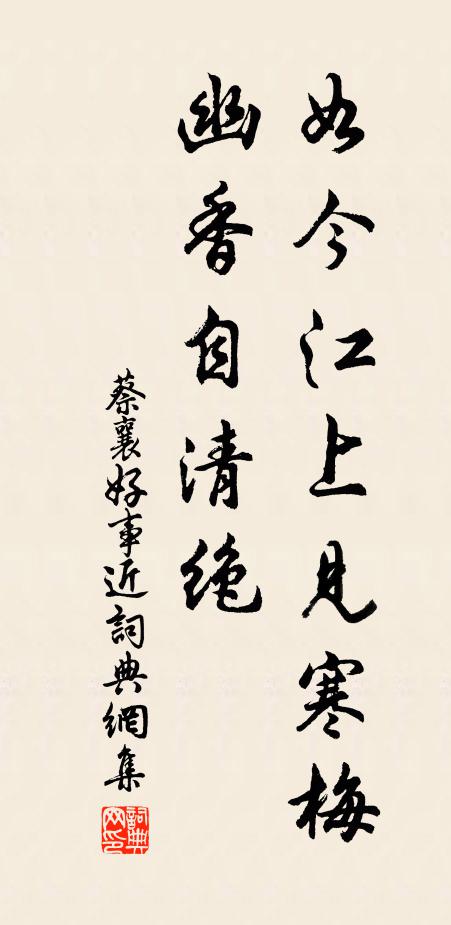 如今江上見寒梅
幽香自清絶
蔡襄好事近詞典網集
詞典网印